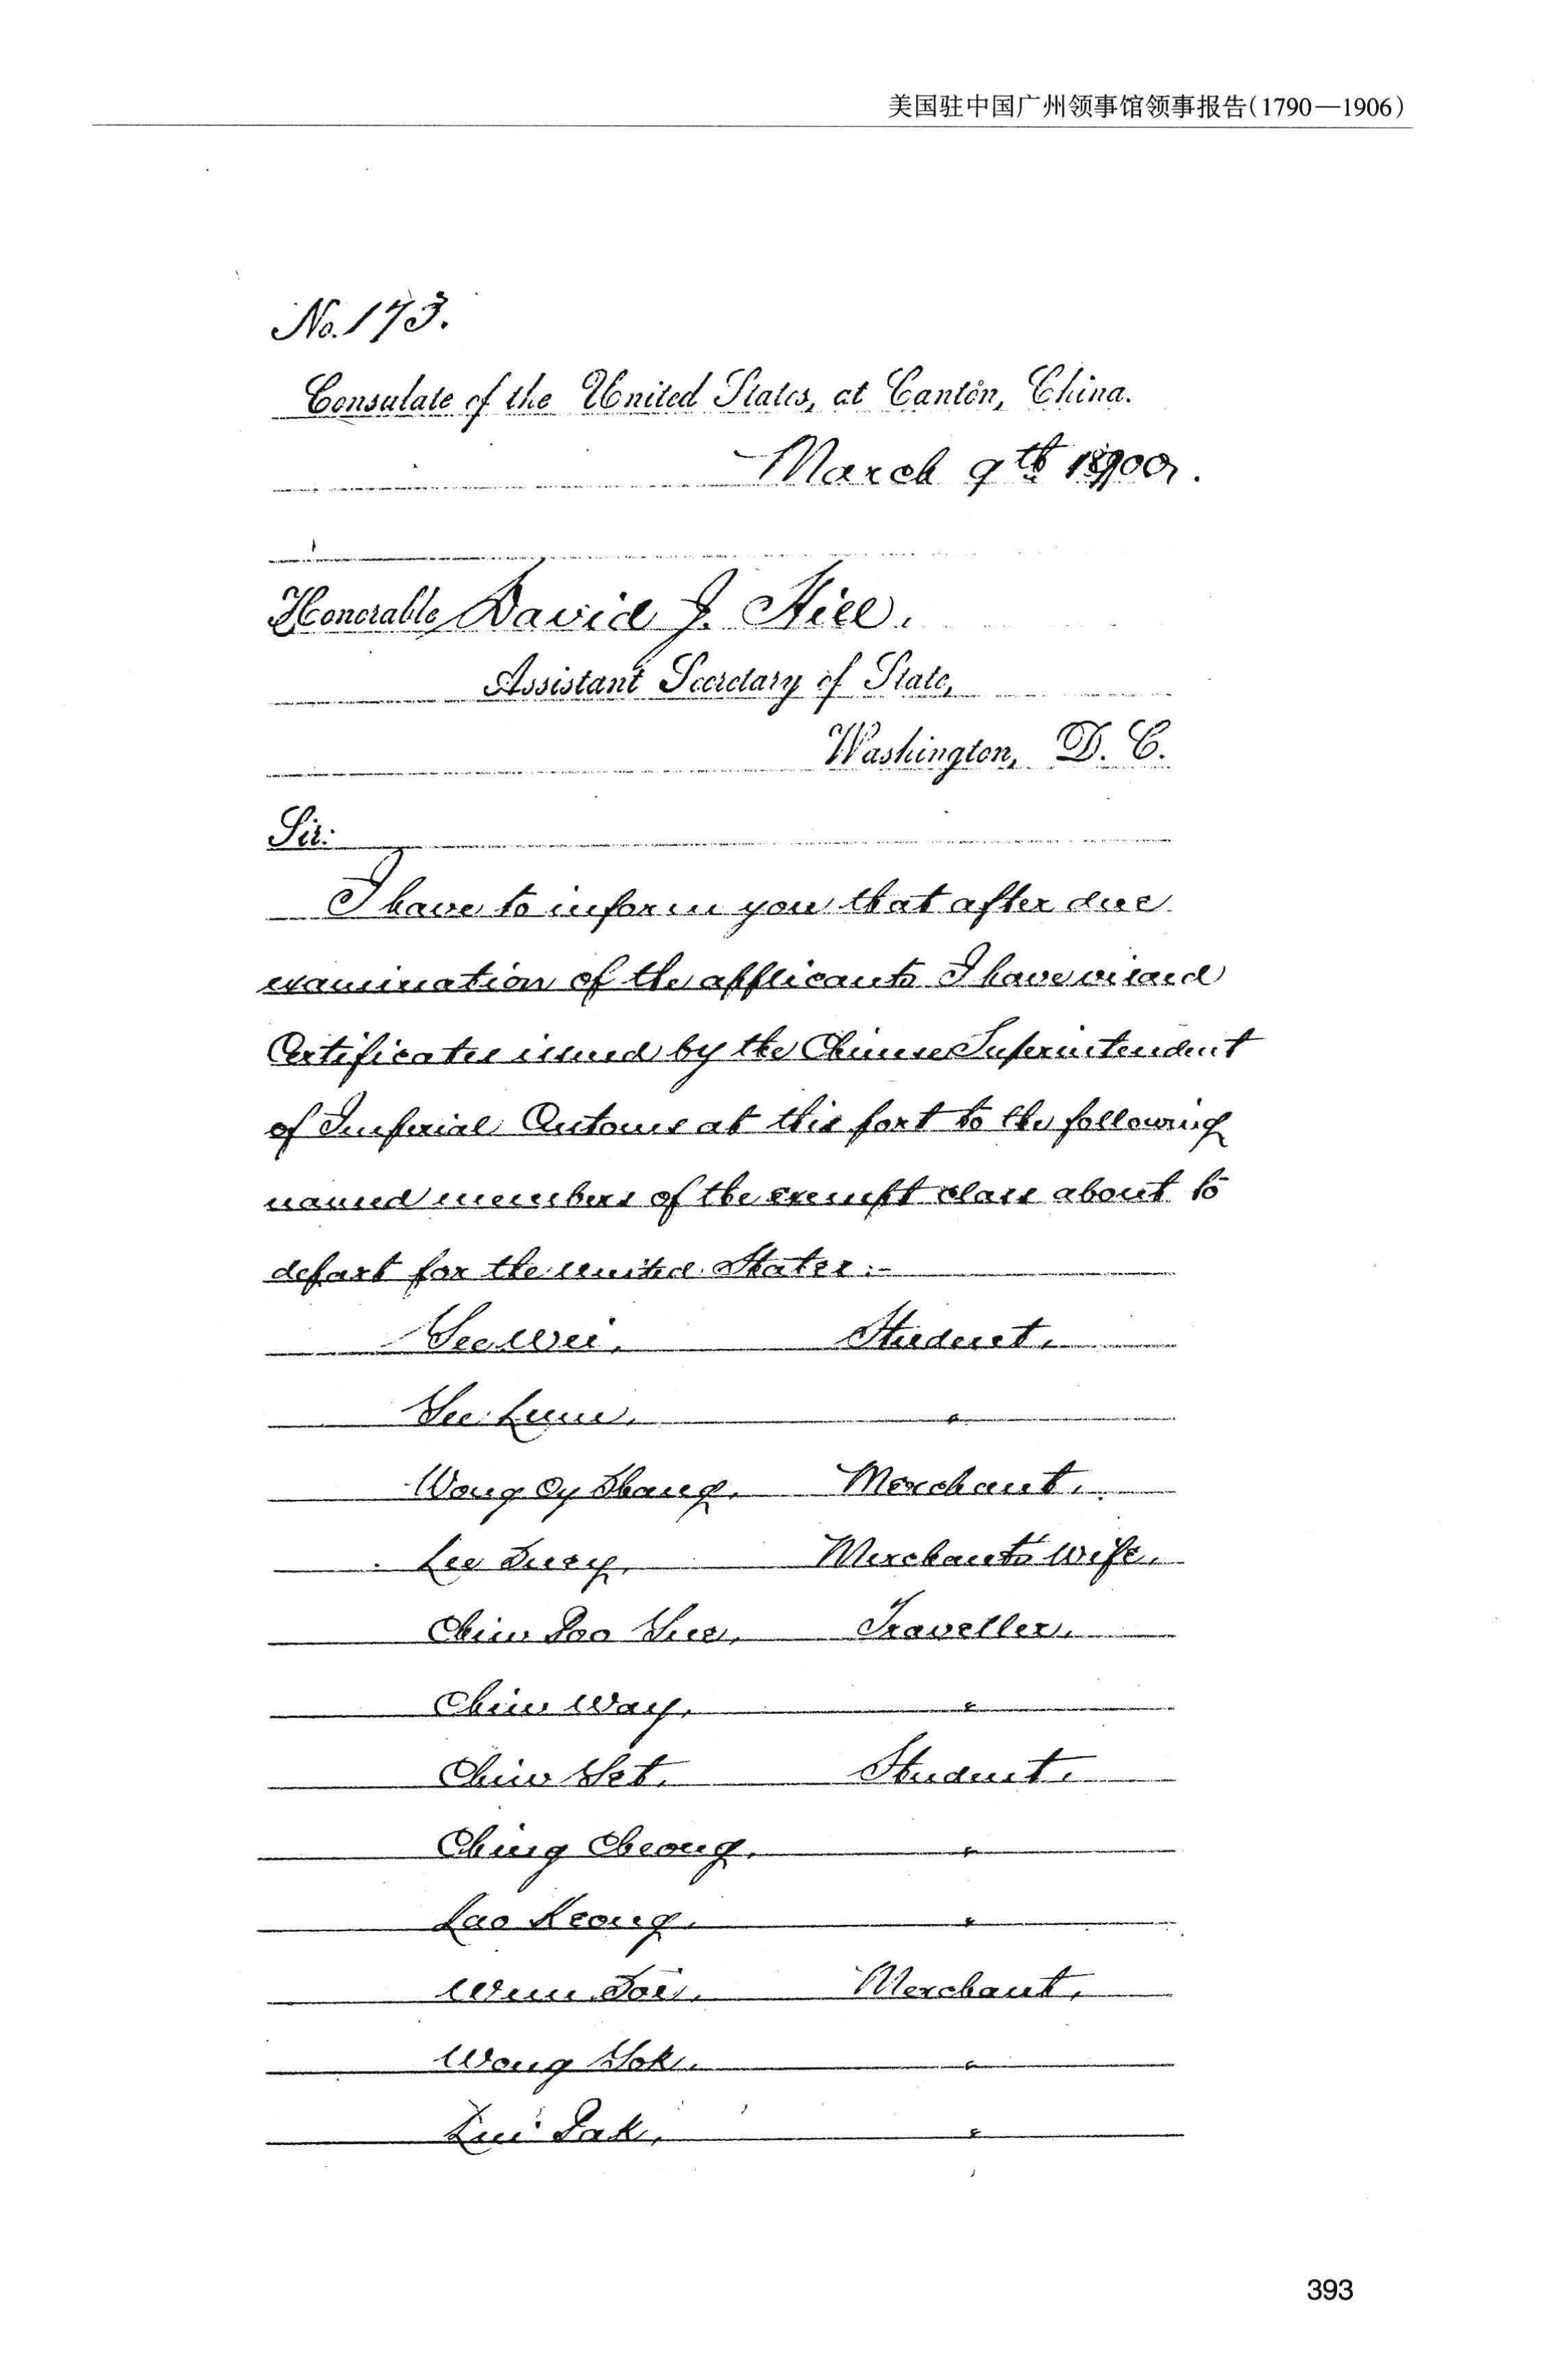 美国驻中国广州领事馆领事报告(1790—1906)
No. 173.
Consulate of the United States, at Canton, China.
March 9th 1900.
Honorable David J. Hill,
Assistant Secretary of State,
Washington, D. C.
Sir:
I have to inform you that after due
examination of the applicants I have visaed
Certificates issued by the Chinese Superintendent
of Imperial Customs at this port to the following
named members of the exempt class about to
depart for the United States:-
Yee Wei, Student,
Yee Lum, "
Wong Oy Shang, Merchant,
Lee Merchant's Wife,
Chin Poo Yue, Traveller,
Chin Way, "
Chin Yet, Student,
Ching Cheong, "
Lao Keong, "
Wun Merchant,
Wong Yok, "
Lui Pak, "
393